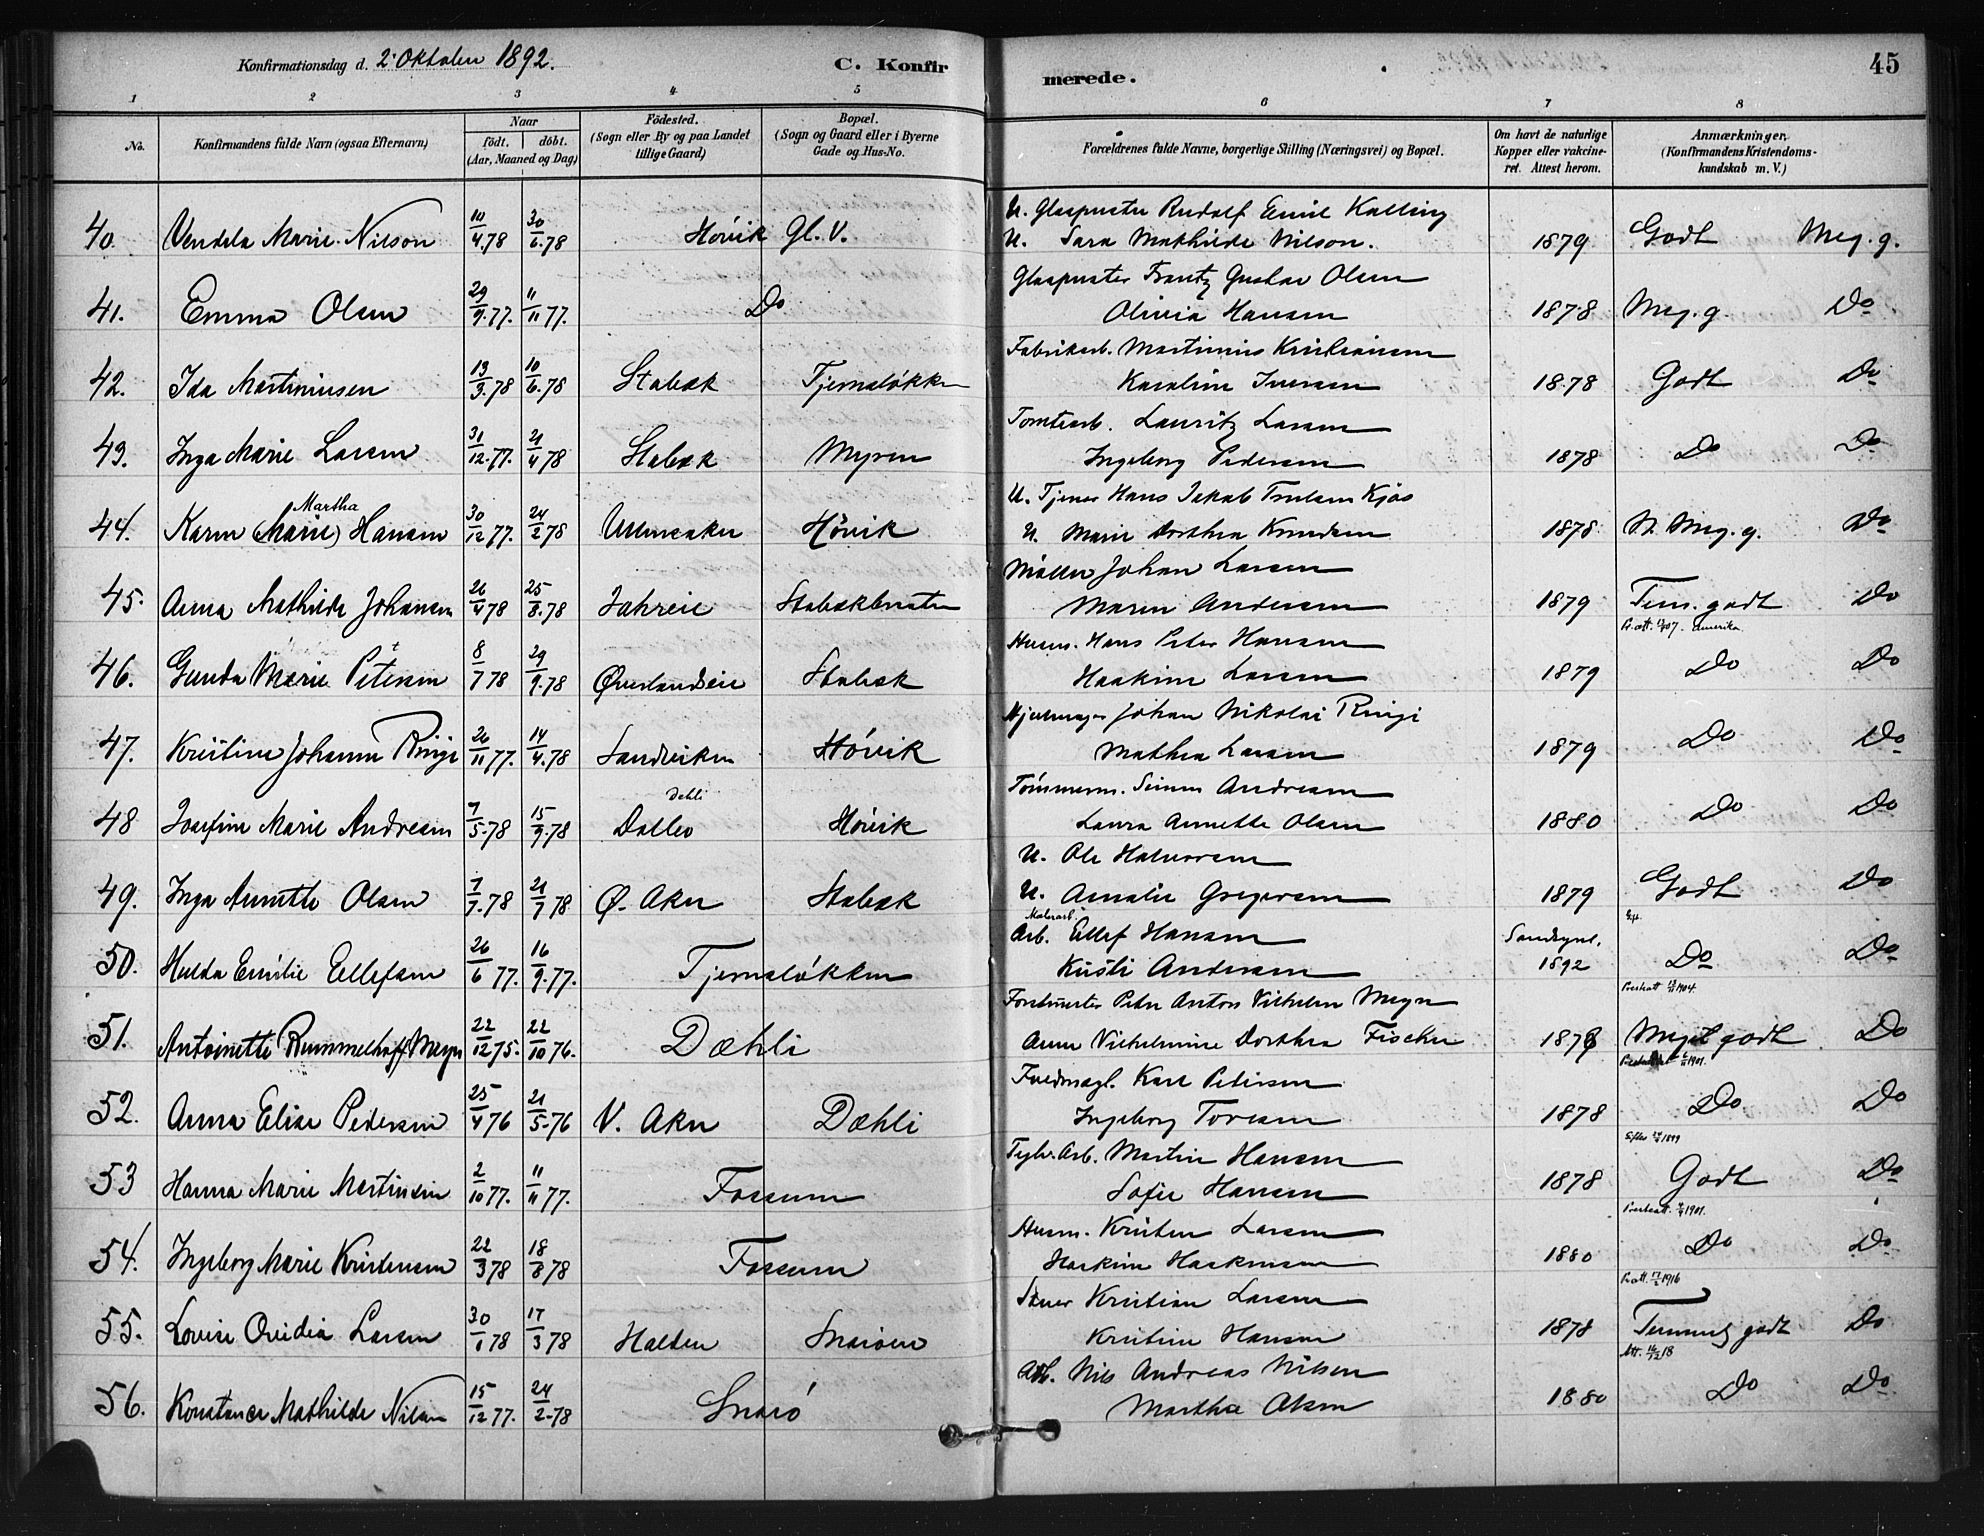 Konfirmationsdag d. 2. Oktober 1892.
C. Konfir
merede.
45
1 2 3 4 5 6 7 8
No. Konfirmandens fulde Navn (ogsaa Efternavn) Naar födt. döbt. (Aar, Maaned og Dag) Födested. (Sogn eller By og paa Landet tillige Gaard) Bopæl. (Sogn og Gaard eller i Byerne Gade og Hus-No. Forældrenes fulde Navne, borgerlige Stilling (Næringsvei) og Bopæl. Om havt de naturlige Kopper eller vakcineret. Attest herom. Anmærkninger. (Konfirmandens Kristendomskundskab m. V.)
U. Glaspuster Rudolf Emil Kalling
40. Vendela Marie Nilson 10/4.78 30/6.78 Hövik Gl. V. U. Sara Mathilde Nilson. 1879 Godt Meg. g.
Glaspuster Frantz Gustav Olsen
41. Emma Olsen 29/9.77. 11/11 77. Do Olivia Hansen 1878 Meg. g. Do
Fabrikarb. Martinius Kristiansen
42. Ida Martiniusen 13/3.78 10/6.78 Stabæk Tjernsløkken Karoline Iversen 1878 Godt Do
Tomtearb. Lauritz Larsen
43. Inga Marie Larsen 31/12.77. 21/4 78 Stabæk Myren Ingeborg Pedersen 1878 Do Do
U. Tjener Hans Jakob Kjos
44. Karen (Marie) Martha Hansen 30/12 77. 24/2 78 Ullensaker Hövik U. Marie Dorthea Knudsen 1878 N. Meg. g. Do
Møller Johan Larsen
45. Anna Mathilde Johansen 26/4 78 25/8.78 Jahreie Stabækbraaten Maren Andersen 1879 Tem. godt Do
Pr.att. 07. Amerika
Husm. Hans Peter Hansen
46. Gunda Marie Petersen 8/7 78 29/9.78 Øverlandseie Stabæk Haakine Larsen 1879 Do Do
Hjulmager Johan Nikolai Ringi
47. Kristine Johanne Ringi 26/11 77. 14/4.78 Sandviken Hövik Mathea Larsen 1879 Do Do
Tömmerm. Simen Andresen
48 Josefine Marie Andresen 7/5.78 15/9.78 Dælivs Dehli Hövik Laura Annette Olsen 1880 Do Do
U. Ole Halvorsen
49. Inga Annette Olsen 7/7.78 21/7 78 Ø. Aker Stabæk U. Amalie Gregersen 1879 Godt Do
Malerarb.
Arb. Ellef Hansen
50. Hulda Emilie Ellefsen 26/6 77. 16/9.77. Tjernsløkken Kristi Andersen 1892 Do Do
Prestatt 1904.
Forstmester Peter Anton Vilhelm Meyn
51. Antoinette Rummelhoff Meyn 22/12 75. 22/10 76. Dæhli Anne Vilhelmine Dorthea Fischer 1878 Meget godt Do
1901.
Karl Petersen
52. Anna Elise Pedersen 25/4 76 21/5.76 V. Aker Dæhli Ingeborg Toresen 1878 Do Do
1899
Arb. Martin Hansen
53 Hanna Marie Martinsen 2/10 77. 11/11 77. Fossum Sofie Hansen 1878 Godt Do
Prestatt. 1901.
Husm. Kristen Larsen
54. Ingeborg Marie Kristensen 22/3 78 18/8 78 Fossum Haakine Haakensen 1880 Do Do
Pr.att. 1916
Kristian Larsen
55. Lovise Ovidia Larsen 30/1 78 17/3 78 Halden Snaröen Kristine Hansen 1878 Temmelig godt Do
Att. 16/12 18
Arb. Nils Andreas Nilsen
56. Konstance Mathilde Nilsen 15/12 77. 24/2.78 Snarö Martha Olsen 1880 Do Do